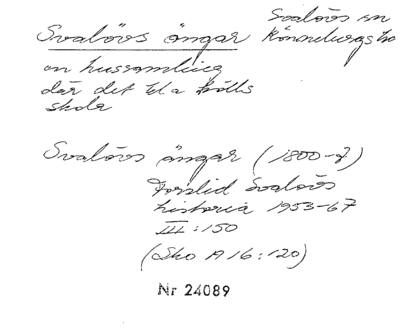 Svalövs ängar
Svalövs sn
Rönnebergs hd
en hussamling
där det bl a hölls
skola
Svalövs ängar (1800-t)
Forslid Svalövs
historia 1953-67
III:150
(Sko A 16:120)
Nr 24089